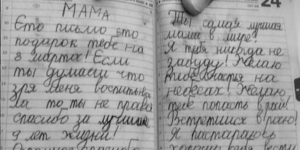 МАМА
Ето письмо это
подарок тебе на
8 марта! Если
ты думаеш что
зря меня воспитывала
то ты не права
спасибо за лучшие
9 лет жизни!
24
Ты самая лучшая
мама в мире!
Я тебя никогда не
забуду! Желаю
счастья на
небесах! Желаю
тебе попасть в рай!
Встретимся в раю!
Я постараюсь
хорошо вести